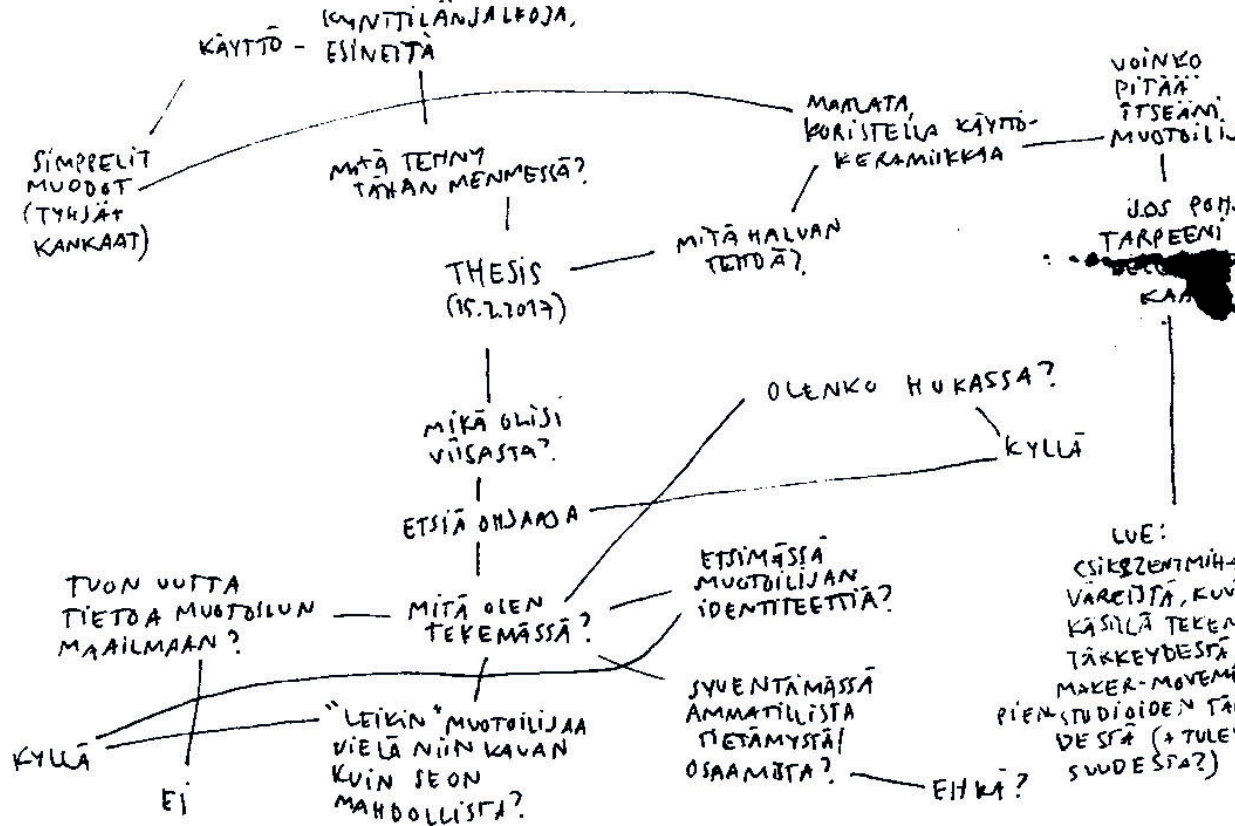 KYNTTILÄNJALKOJA,
KÄYTTÖ - ESINEITÄ
SIMPPELIT
MUODOT
(TYHJÄT
KANKAAT)
MITÄ TEHNY
TÄHAN MENMESSÄ?
MAALATA,
KORISTELLA KÄYTTÖ-
KERAMIIKKAA
VOINKO
PITÄÄ
ITSEÄNI
MUOTOILI
JOS POH
TARPEENI
KAA
THESIS
(15.2.2017)
MITÄ HALUAN
TEHDÄ?
MIKÄ OLISI
VIISASTA?
OLENKO HUKASSA?
KYLLÄ
ETSIÄ OHJAAJA
TUON UUTTA
TIETOA MUOTOILUN
MAAILMAAN?
MITÄ OLEN
TEKEMÄSSÄ?
ETSIMÄSSÄ
MUOTOILIJAN
IDENTITEETTIÄ?
KYLLÄ
EI
"LEIKIN" MUOTOILIJAA
VIELÄ NIIN KAUAN
KUIN SE ON
MAHDOLLISTA?
SYVENTÄMÄSSÄ
AMMATILLISTA
TIETÄMYSTÄ/
OSAAMISTA?
EHKÄ?
LUE:
CSIKSZENTMIH
VÄREISTÄ, KUV
KÄSILLÄ TEKEM
TÄRKEYDESTÄ
MAKER-MOVEM
PIENSTUDIOIDEN TÄ
DESTÄ (+ TULE
SUUDESTA?)